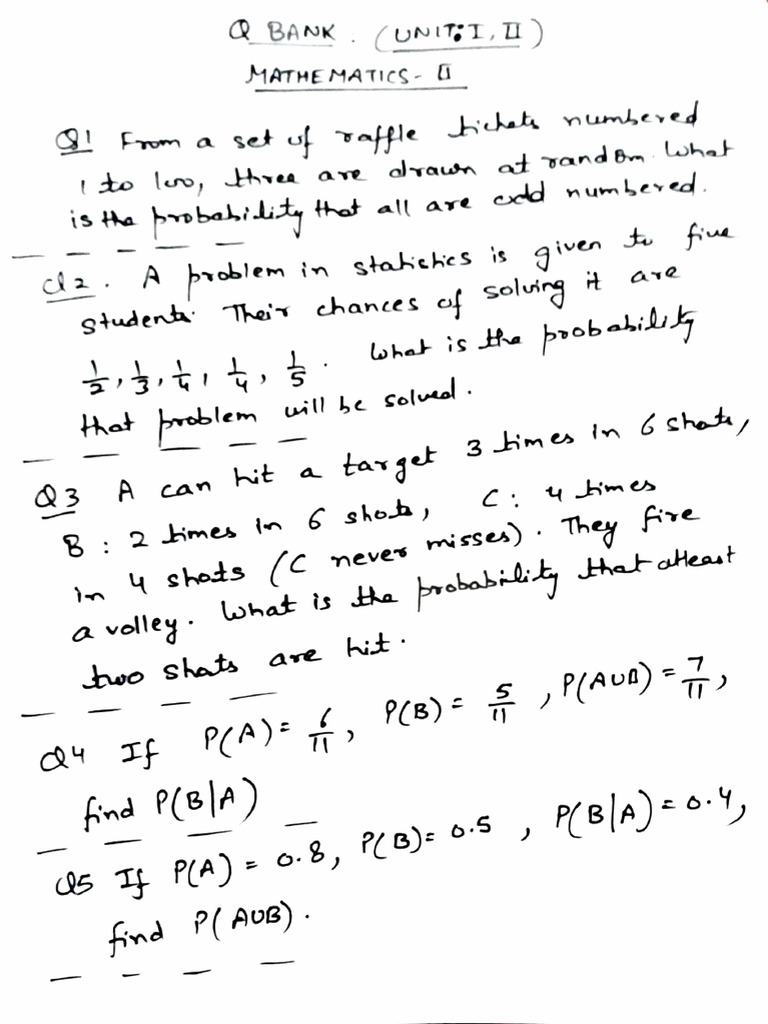 Q BANK. (UNIT: I, II)
MATHEMATICS - II
Q1 From a set of raffle tickets numbered
1 to 100, three are drawn at random. What
is the probability that all are odd numbered.
Q2. A problem in statistics is given to five
students. Their chances of solving it are
1/2, 1/3, 1/4, 1/4, 1/5. What is the probability
that problem will be solved.
Q3 A can hit a target 3 times in 6 shots,
B : 2 times in 6 shots, C : 4 times
in 4 shots (C never misses). They fire
a volley. What is the probability that atleast
two shots are hit.
Q4 If P(A) = 6/11, P(B) = 5/11, P(A∪B) = 7/11,
find P(B|A)
Q5 If P(A) = 0.8, P(B) = 0.5, P(B|A) = 0.4,
find P(A∪B).